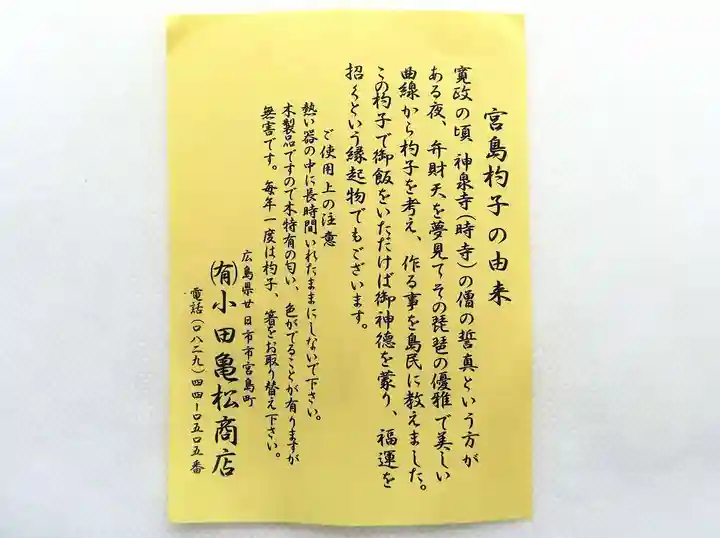 宮島杓子の由来
寛政の頃 神泉寺(時寺)の僧の誓真という方が
ある夜、弁財天を夢見てその琵琶の優雅で美しい
曲線から杓子を考え、作る事を島民に教えました。
この杓子で御飯をいただけば御神徳を蒙り、福運を
招くという縁起物でもございます。
ご使用上の注意
熱い器の中に長時間いれたままにしないで下さい。
木製品ですので木特有の匂い、色がでることが有りますが
無害です。毎年一度は杓子、箸をお取り替え下さい。
広島県廿日市市宮島町
㈲小田亀松商店
電話(〇八二九)四四-〇五〇五番